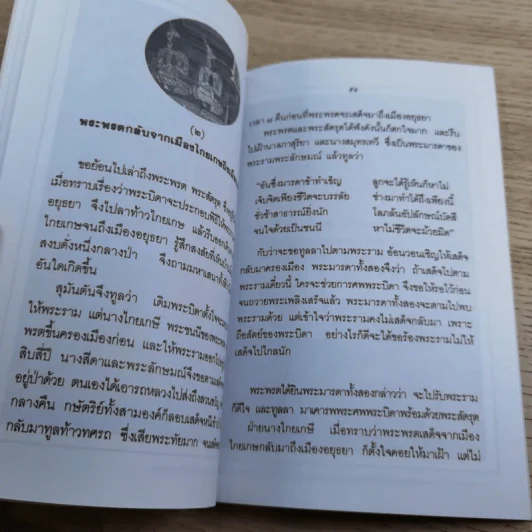 (๒)
พระพรตกลับจากเมืองไกยเกษ
ขอย้อนไปเล่าถึงพระพรต พระสัตรุด
เมื่อทราบเรื่องว่าพระบิดาจะประกอบพิธี
อยุธยา จึงไปลาท้าวไกยเกษ แล้วรีบออก
ไกยเกษจนถึงเมืองอยุธยา รู้สึกสงสัยที่
สงบดั่งหนึ่งกลางป่า จึงถามมหาเสนา
อันใดเกิดขึ้น
สุมันตันจึงทูลว่า เดิมพระบิดาตั้งใจ
ให้พระราม แต่นางไกยเกษี พระชนนีของ
พรตขึ้นครองเมืองก่อน และให้พระราม
สิบสี่ปี นางสีดาและพระลักษมณ์จึงขอ
อยู่ป่าด้วย ตนเองได้เอารถหลวงไปส่งถึง
กลางคืน กษัตริย์ทั้งสามองค์ก็ลอบเสด็จหนี
กลับมาทูลท้าวทศรถ ซึ่งเสียพระทัยมาก
๕๑
เวลา ๗ คืนก่อนที่พระพรตจะเสด็จมาถึงเมืองอยุธยา
พระพรตและพระสัตรุดได้ฟังดังนั้นก็ตกใจมาก และรีบ
ไปเฝ้านางเกาสุริยา และนางสมุทรเทวี ซึ่งเป็นพระมารดาของ
พระรามพระลักษมณ์ แล้วทูลว่า
“อันซึ่งมารดาข้าทำเข็ญ ลูกจะได้รู้เห็นก็หาไม่
เจ็บจิตเพียงชีวิตจะบรรลัย ช่างมาทำได้ถึงเพียงนี้
ชั่วช้าสาธารณ์ยิ่งนัก โลภล้นอัปลักษณ์บัดสี
จนใจด้วยเป็นชนนี หาไม่ชีวีจะม้วยมิด”
กับว่าจะขอทูลลาไปตามพระราม อ้อนวอนเชิญให้เสด็จ
กลับมาครองเมือง พระมารดาทั้งสองจึงว่า ถ้าเสด็จไปตาม
พระรามเดี๋ยวนี้ ใครจะช่วยการศพพระบิดา จึงขอให้รอไว้ก่อน
จนถวายพระเพลิงเสร็จแล้ว พระมารดาทั้งสองจะตามไปพบ
พระรามด้วย แต่เข้าใจว่าพระรามคงไม่เสด็จกลับมา เพราะ
ถือสัตย์ของพระบิดา อย่างไรก็ดีจะได้ขอร้องพระรามไม่ให้
เสด็จไปไกลนัก
พระพรตได้ยินพระมารดาทั้งสองกล่าวว่า จะไปรับพระราม
ก็ดีใจ และทูลลา มาเคารพพระศพพระบิดาพร้อมด้วยพระสัตรุด
ฝ่ายนางไกยเกษี เมื่อทราบว่าพระพรตเสด็จจากเมือง
ไกยเกษกลับมาถึงเมืองอยุธยา ก็ตั้งใจคอยให้มาเฝ้า แต่ไม่